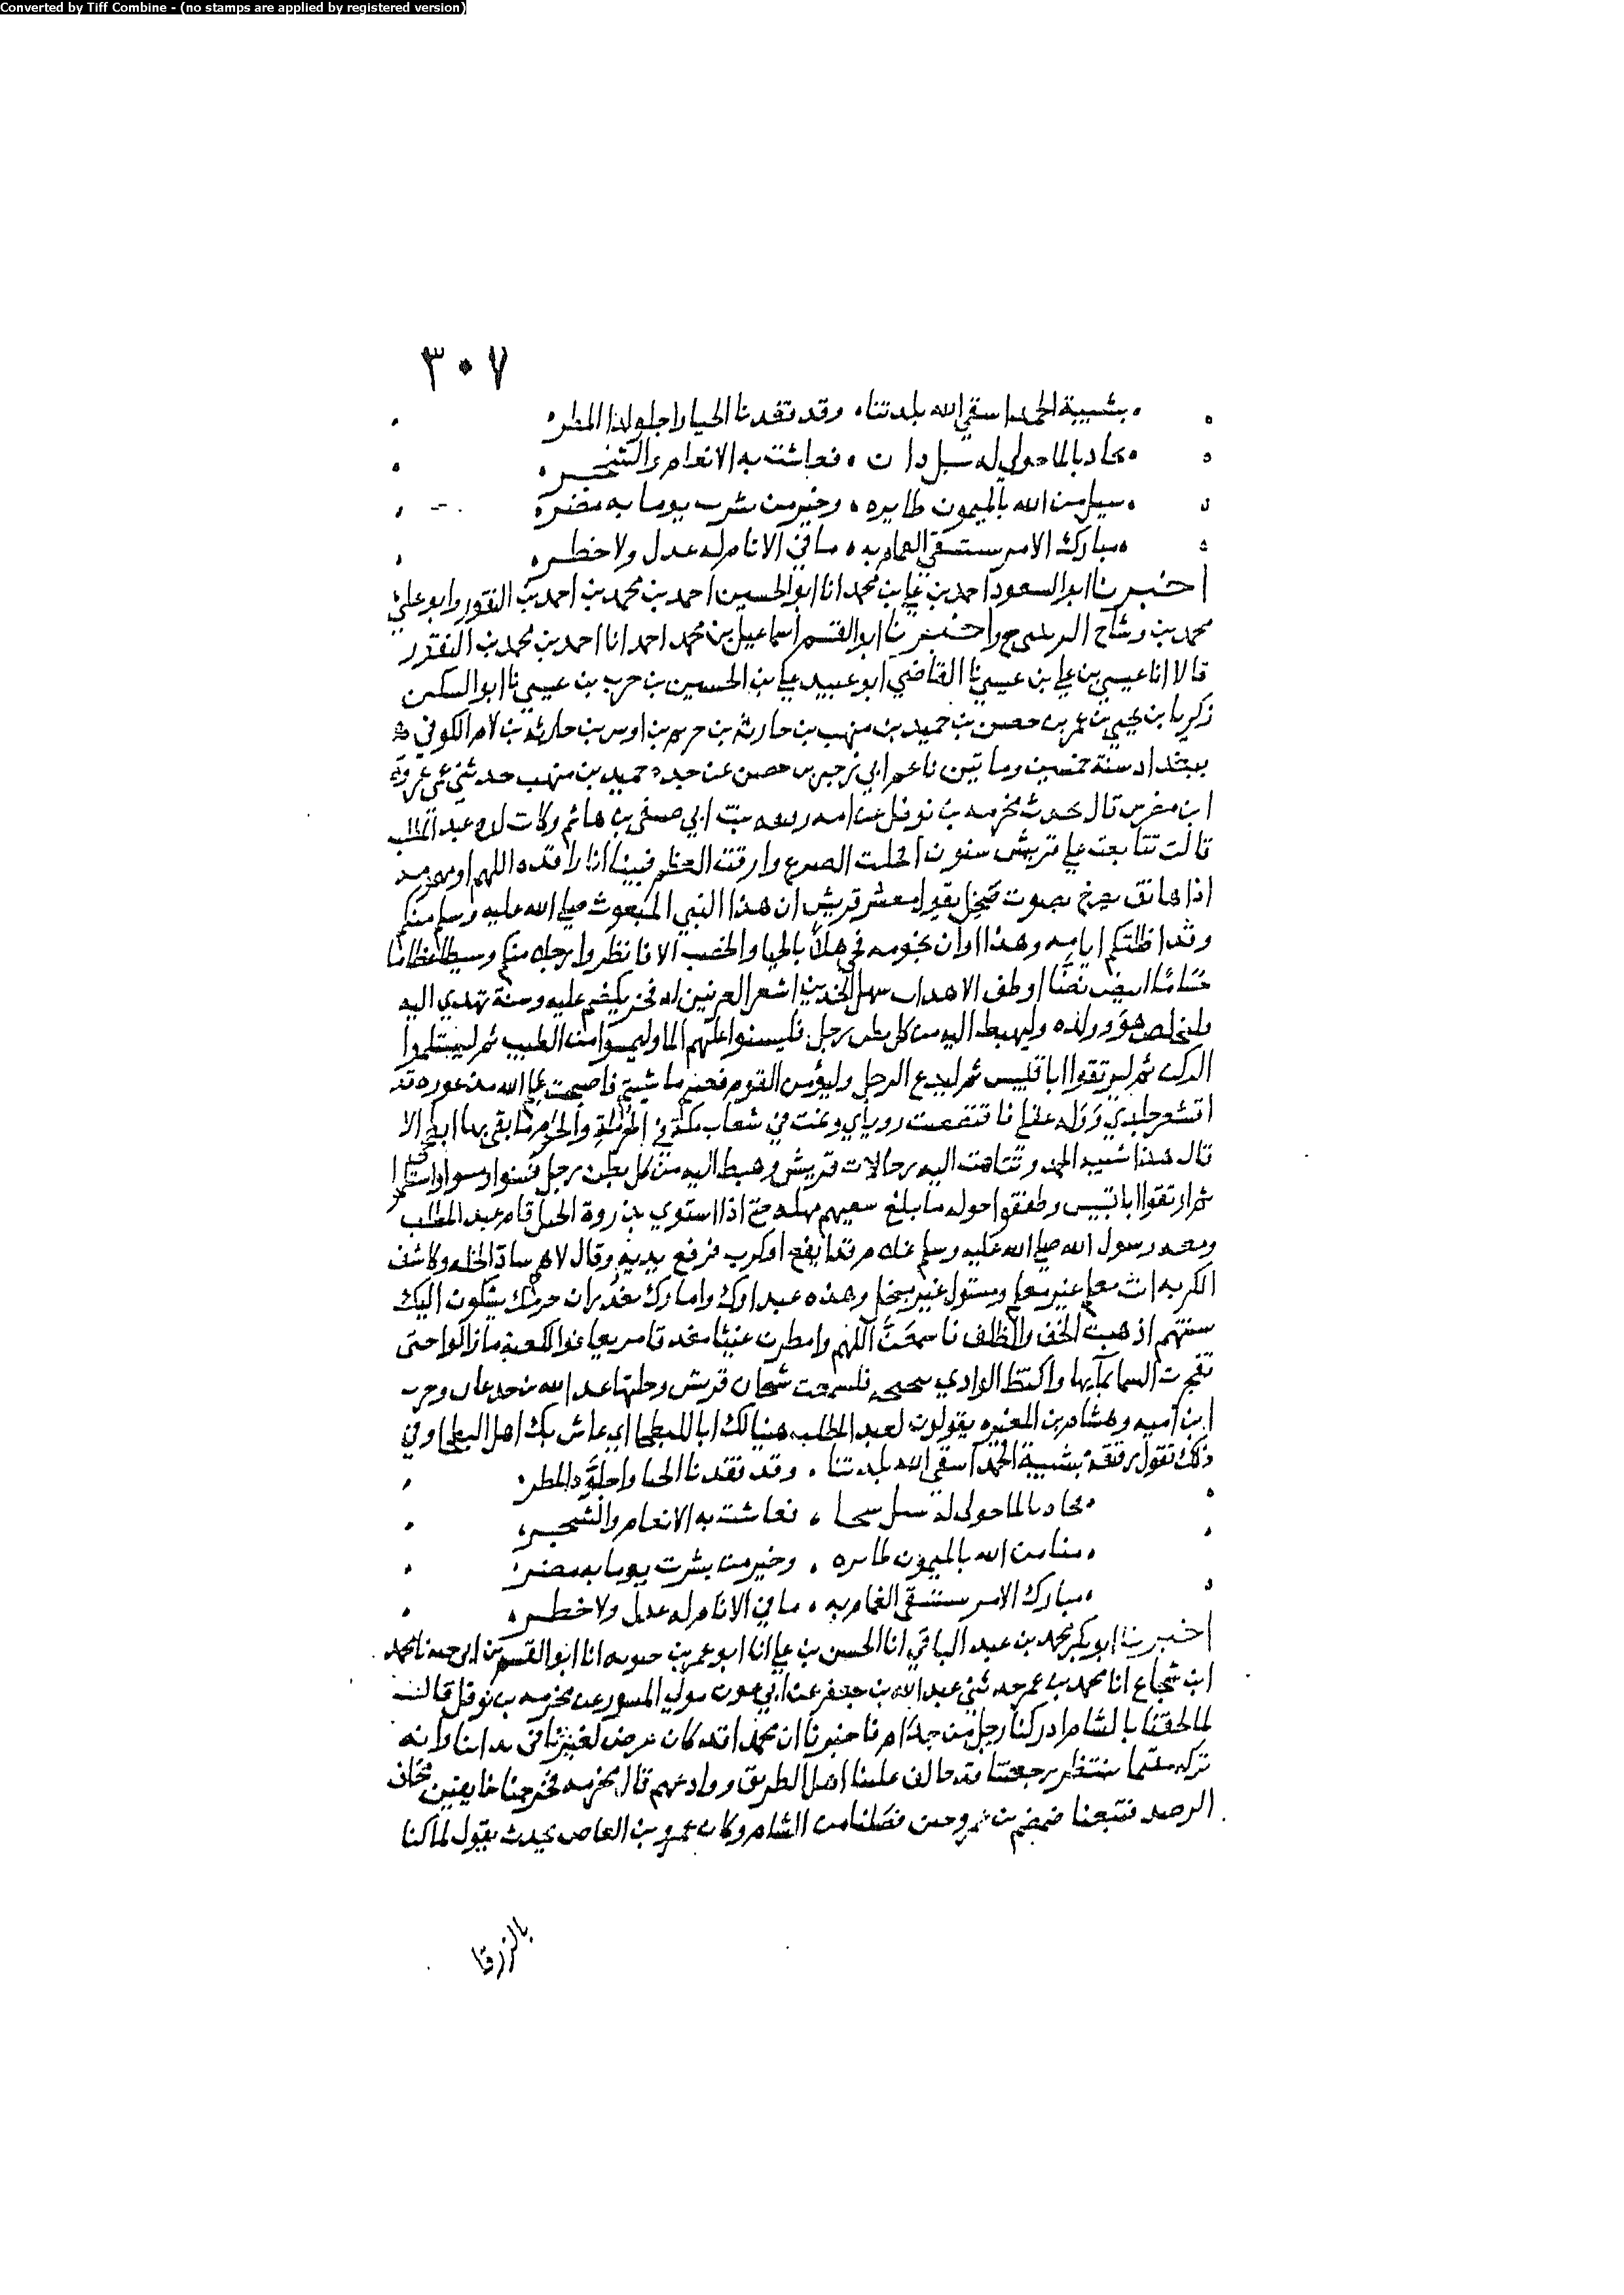 Converted by Tiff Combine - (no stamps are applied by registered version)
٣٠٧
بشيبة الحمد اسقي الله بلدتنا وقد تفقدنا الحيا واجلوذ المطر
مجاد بالما حولي له سبل دان فعاشت به الانعام والشجر
سيل من الله بالميمون طايره وخير من بشرت يوما به مضر
مبارك الامر يستسقي الغمام به ما في الانام له عدل ولا خطر
اخبرنا ابو السعود احمد بن علي بن محمد انا ابو الحسين احمد بن محمد بن احمد بن النقور وابو علي
محمد بن وشاح ح واخبرنا ابو القسم اسماعيل بن محمد احمد انا احمد بن محمد بن النقور
قالا انا عيسي بن علي بن عيسي نا القاضي ابو عبيد علي بن الحسين بن حرب بن عيسي نا ابو السكين
زكريا بن يحيي بن عمر بن حصن بن حميد بن منهب بن حارثة بن خريم بن اوس بن حارثة بن لام الكوفي
ببغداد سنة خمسين وماتين نا عم ابي زحر بن حصن عن جده حميد بن منهب حدثني عمي عروة
ابن مضرس قال يحدث مخرمه بن نوفل عن امه رقيقه بنت ابي صيفي بن هاشم وكانت لده عبد المطلب
قالت تتابعت علي قريش سنون امحلت الضرع وارقت العظم فبينا انا راقده اللهم او مهومه
اذا هاتف يصرخ بصوت صحل يقول معشر قريش ان هذا النبي المبعوث صلي الله عليه وسلم منكم
وقد اظلتكم ايامه وهذا اوان نجومه فحي هلا بالحيا والخصب الا فانظروا رجلا منكم وسيطا عظاما
جساما ابيض بضا اوطف الاهداب سهل الخدين اشم العرنين له فخر يكظم عليه وسنة تهدي اليه
فليخلص هو وولده وليهبط اليه من كل بطن رجل فليسنوا عليهم الما وليمسوا من الطيب ثم ليستلموا
الركن ثم ليرتقوا ابا قبيس ثم ليدع الرجل وليؤمن القوم فغثتم ما شيتم فاصبحت علم الله مذعوره قد
اقشعر جلدي ووله عقلي فاقتصصت روياي ونمت في شعاب مكة في الحرمة والحرم ما بقي بها ابطحي الا
قال هذا شيبه الحمد وتتامت اليه رجالات قريش وهبط اليه من كل بطن رجل فسنوا ومسوا واستلموا
ثم ارتقوا ابا قبيس وطفقوا حوله ما يبلغ سعيهم مهله حتي اذا استوي بذروة الجبل قام عبد المطلب
ومعه رسول الله صلي الله عليه وسلم غلام قد ايفع او كرب فرفع يديه وقال لاهم ساد الخله وكاشف
الكربه انت معلم غير معلم ومسئول غير مبخل وهذه عبداوك واماوك بعذرات حرمك يشكون اليك
سنتهم اذهبت الخف والظلف فاسمعن اللهم وامطرن غيثا مغدقا مريعا فوالكعبة ما زالوا حتي
تفجرت السما بمآيها واكتظ الوادي بثجيجه فلسمعت شيخان قريش وجلتها عبد الله بن جدعان وحرب
ابن اميه وهشام بن المغيره يقولون لعبد المطلب هنيا لك ابا البطحا اي عاش بك اهل البطحا وفي
ذلك تقول رقيقة بشيبة الحمد اسقي الله بلدتنا وقد تفقدنا الحيا واجلوذ المطر
مجاد بالما حولي له سبل سحا فعاشت به الانعام والشجر
منا من الله بالميمون طايره وخير من بشرت يوما به مضر
مبارك الامر يستسقي الغمام به ما في الانام له عدل ولا خطر
اخبرنا ابو بكر محمد بن عبد الباقي انا الحسن بن علي انا ابو عمر بن حيويه انا ابو القسم بن ابي حيه نا محمد
ابن شجاع انا محمد بن عمر حدثني عبد الله بن جعفر عن ابي عون مولي المسور عن مخرمه بن نوفل قال
لما لحقنا بالشام ادركنا رجل من جذام فاخبرنا ان محمدا قد كان عرض لعيرنا في بداتنا وانه
تركه مقيما ينتظر رجعتنا قد حالف علينا اهل الطريق ووادعهم قال مخرمه فخرجنا خايفين نخاف
الرصد فبعثنا ضمضم بن عمرو حين فصلنا من الشام وكان عمرو بن العاص يحدث يقول لما كنا
بالزرقا